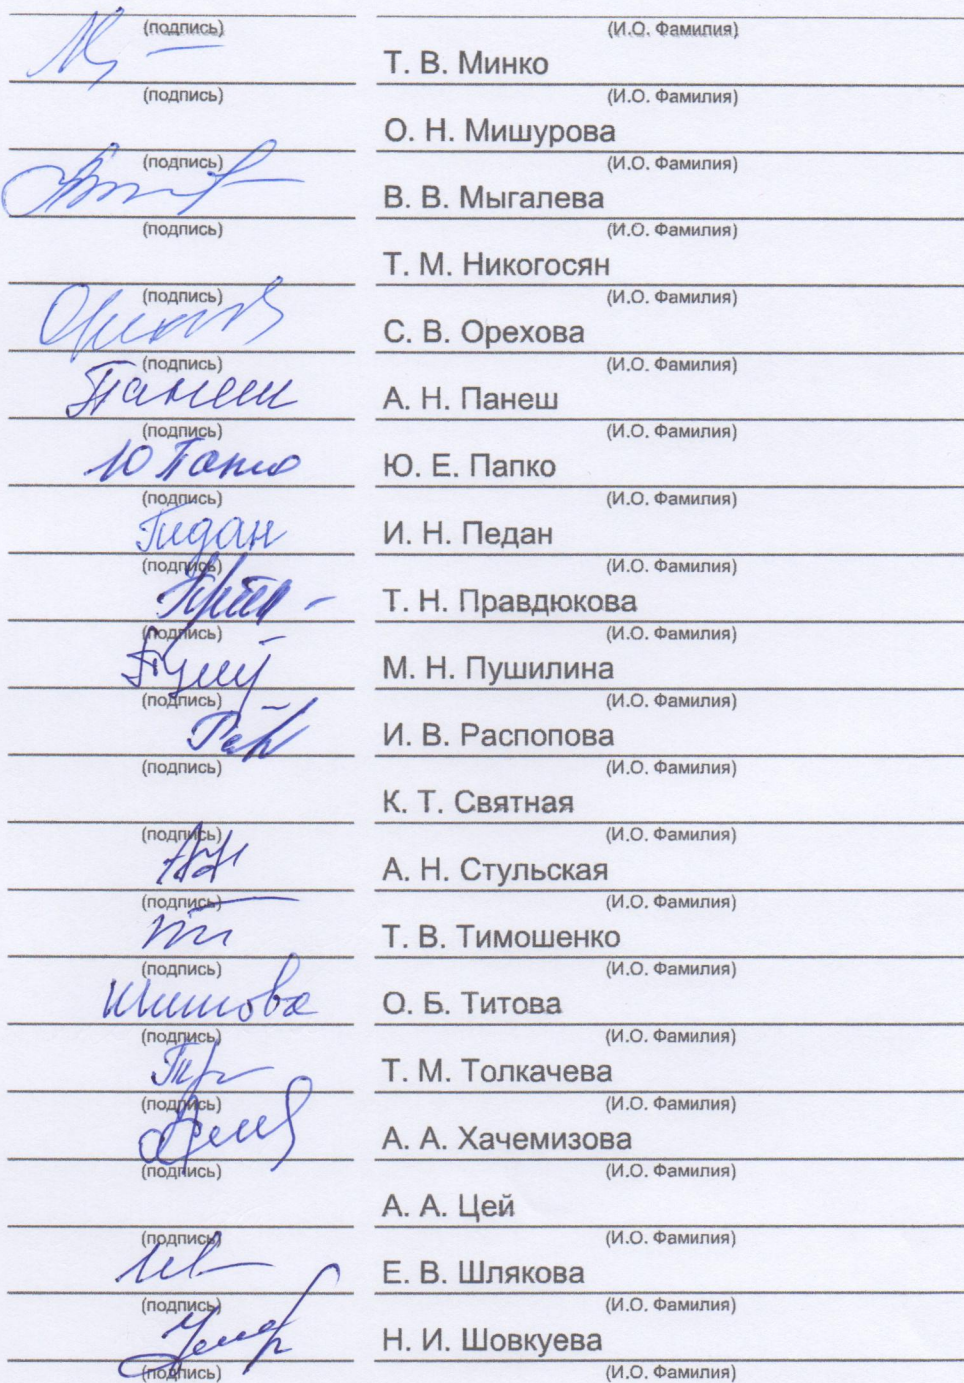 (подпись) (И.О. Фамилия)
Т. В. Минко
(подпись) (И.О. Фамилия)
О. Н. Мишурова
(подпись) (И.О. Фамилия)
В. В. Мыгалева
(подпись) (И.О. Фамилия)
Т. М. Никогосян
(подпись) (И.О. Фамилия)
С. В. Орехова
(подпись) (И.О. Фамилия)
Панеш А. Н. Панеш
(подпись) (И.О. Фамилия)
Ю. Е. Папко
(подпись) (И.О. Фамилия)
И. Н. Педан
(подпись) (И.О. Фамилия)
Т. Н. Правдюкова
(подпись) (И.О. Фамилия)
М. Н. Пушилина
(подпись) (И.О. Фамилия)
И. В. Распопова
(подпись) (И.О. Фамилия)
К. Т. Святная
(подпись) (И.О. Фамилия)
А. Н. Стульская
(подпись) (И.О. Фамилия)
Т. В. Тимошенко
(подпись) (И.О. Фамилия)
О. Б. Титова
(подпись) (И.О. Фамилия)
Т. М. Толкачева
(подпись) (И.О. Фамилия)
А. А. Хачемизова
(подпись) (И.О. Фамилия)
А. А. Цей
(подпись) (И.О. Фамилия)
Е. В. Шлякова
(подпись) (И.О. Фамилия)
Н. И. Шовкуева
(подпись) (И.О. Фамилия)